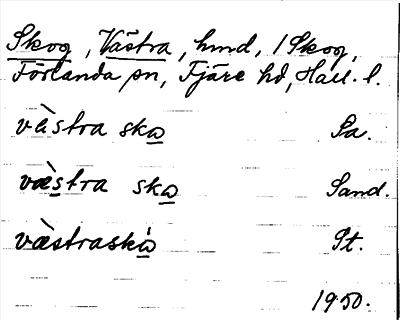 Skog, Västra, hmd, i Skog,
Förlanda sn, Fjäre hd, Hall. l.
vàstra ska Sa.
væ̀stra ska Sand.
væ̀straskà St.
1950.